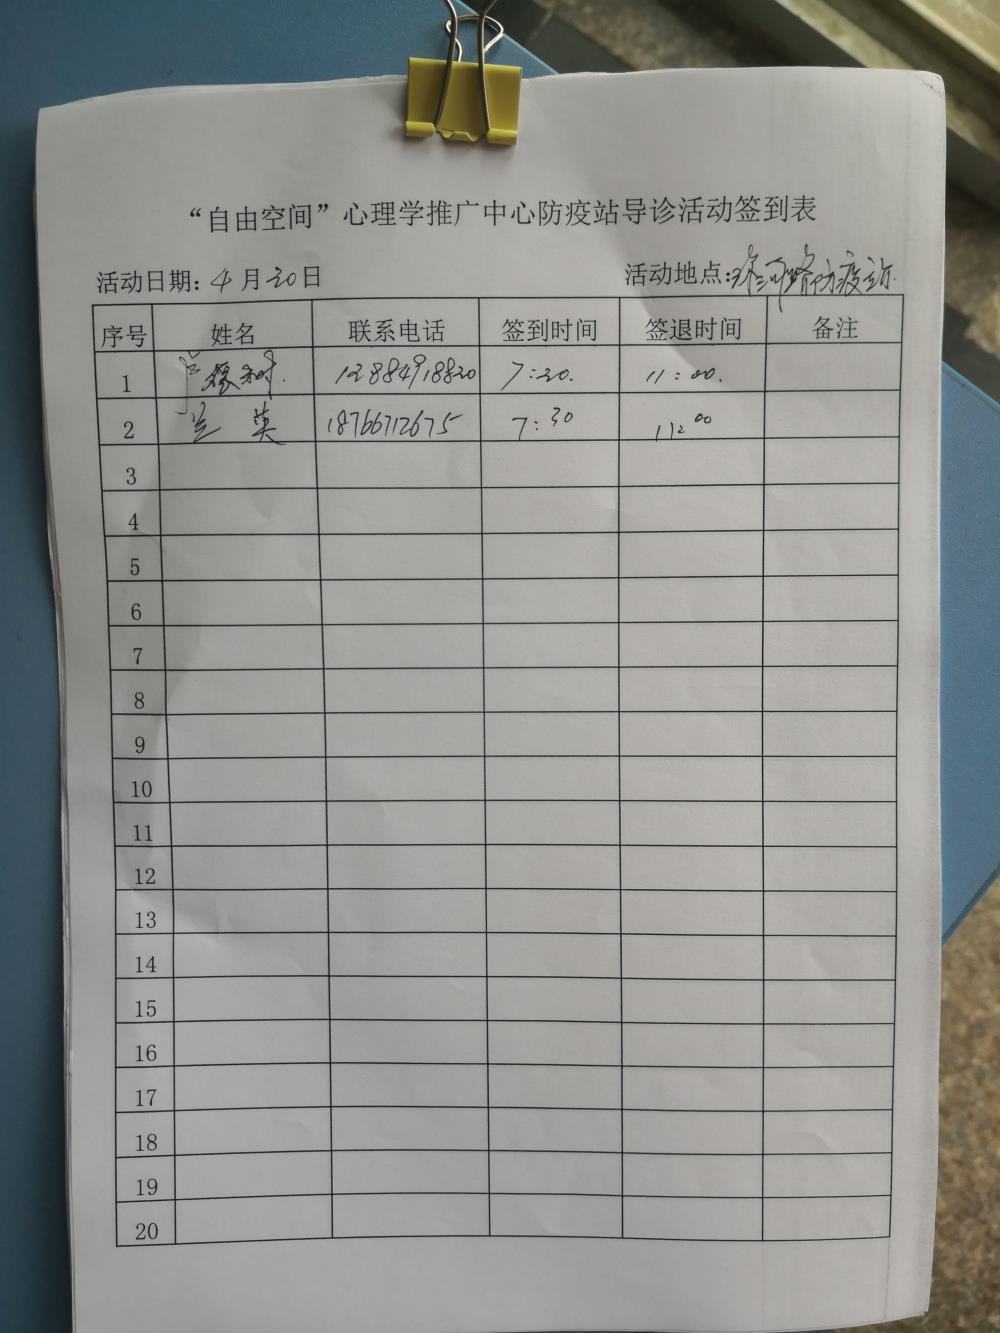 “自由空间”心理学推广中心防疫站导诊活动签到表
活动日期: 4月20日 活动地点: 防疫站
序号 姓名 联系电话 签到时间 签退时间 备注
1 7:30. 11:00.
2 兰英 18766712675 7:30 11:00
3
4
5
6
7
8
9
10
11
12
13
14
15
16
17
18
19
20